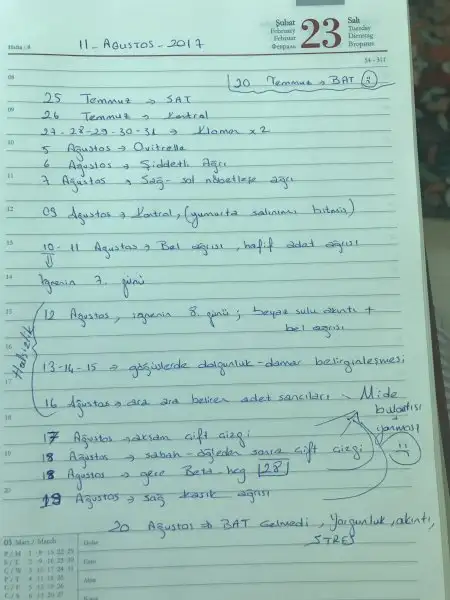 Şubat
February
Februar
Февраль
23
Salı
Tuesday
Dienstag
Вторник
Hafta : 8
54 - 311
11 - AĞUSTOS - 2017
20 Temmuz → BAT
25 Temmuz → SAT
26 Temmuz → Kontrol
27 - 28 - 29 - 30 - 31 → Klomen x 2
5 Ağustos → Ovitrelle
6 Ağustos → Şiddetli Ağrı
7 Ağustos → Sağ - sol nöbetleşe ağrı
09 Ağustos → Kontrol, (yumurta salınımı bitmiş)
10 - 11 Ağustos → Bel ağrısı, hafif adet ağrısı
⇓
İğnenin 7. günü
12 Ağustos, iğnenin 8. günü; beyaz sulu akıntı +
bel ağrısı
Halsizlik
13 - 14 - 15 → göğüslerde dolgunluk - damar belirginleşmesi
16 Ağustos → ara ara beliren adet sancıları → Mide
bulantısı
yanması
17 Ağustos → akşam çift çizgi
18 Ağustos → sabah - öğleden sonra çift çizgi
18 Ağustos → gece Beta hcg 128
19 Ağustos → sağ kasık ağrısı
20 Ağustos → BAT Gelmedi, Yorgunluk, akıntı,
STRES
08
09
10
11
12
13
14
15
16
17
18
19
20
03 Mart / March